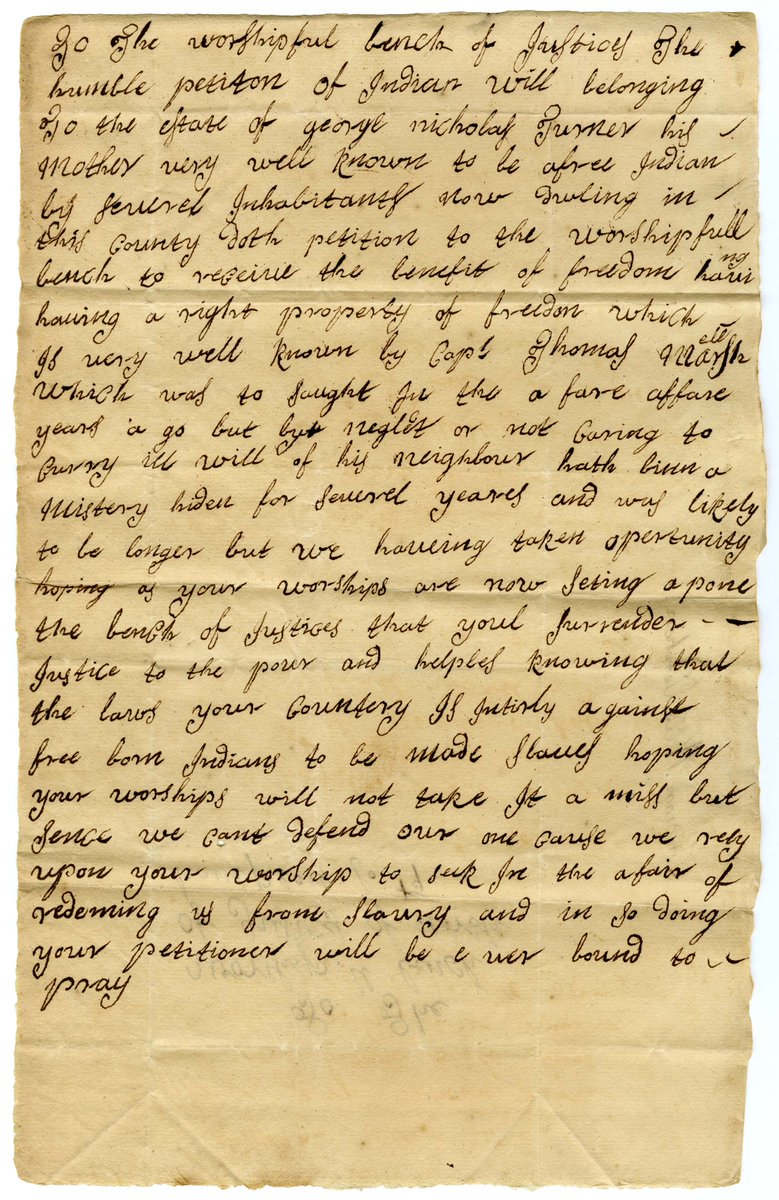 To The worshipful bench of Justices The
humble petiton of Indian will belonging
To the estate of george nicholas Turner his
Mother very well known to be afree Indian
by severel Inhabitants now Dwling in
this County Doth petition to the worshipfull
bench to receive the benefit of freedom having
having a right property of freedon which
Is very well known by Capt Thomas Marsh
which was to saught In the a fare affare
years a go but but neglet or not Caring to
Curry ill will of his neighbour hath binn a
Mistery hiden for severel yeares and was likely
to be longer but we haveing taken opertunity
hoping as your worships are now seting a pone
the bench of Justices that youl Surrender
Justice to the pour and helples knowing that
the laws your Countery Is Intirly against
free born Indians to be made slaves hoping
your worships will not take It a miss but
sence we cant defend our one cause we rely
upon your worship to seek In the afair of
redeming us from slavery and in so doing
your petitioner will be e ver bound to
pray